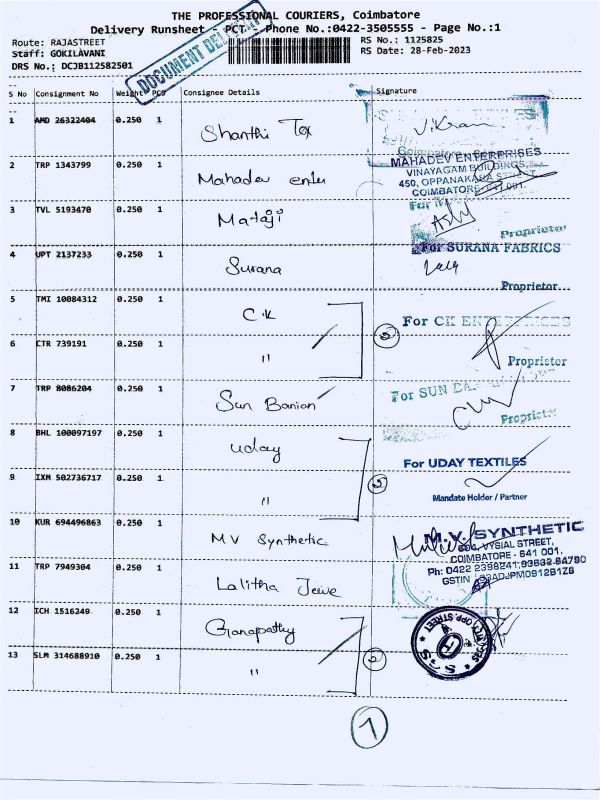 THE PROFESSIONAL COURIERS, Coimbatore
Delivery Runsheet - PCT - Phone No.:0422-3505555 - Page No.:1
Route: RAJASTREET
RS No.: 1125825
Staff: GOKILAVANI
RS Date: 28-Feb-2023
DRS No.: DCJB112582501
DOCUMENT DELIVERY
S No Consignment No Weight PCS Consignee Details Signature
1 AMD 26322404 0.250 1 Shanthi Tex Vikram
2 TRP 1343799 0.250 1 Mahadev enter
MAHADEV ENTERPRISES
VINAYAGAM BUILDINGS,
450, OPPANAKARA STREET,
COIMBATORE-641 001.
3 TVL 5193470 0.250 1 Mataji
Proprietor
4 UPT 2137233 0.250 1 Surana
For SURANA FABRICS
Proprietor
5 TMI 10084312 0.250 1 C.K
For CK ENTERPRISES
6 CTR 739191 0.250 1 " 2
Proprietor
7 TRP 8086204 0.250 1 Sun Banian
For SUN
Proprietor
8 BHL 100097197 0.250 1 uday
For UDAY TEXTILES
9 IXM 502736717 0.250 1 " 2
Mandate Holder / Partner
10 KUR 694496863 0.250 1 MV Synthetic
M.V. SYNTHETIC
VYSIAL STREET,
COIMBATORE - 641 001.
11 TRP 7949304 0.250 1 Lalitha Jewe
Ph: 0422 2398241, 93632 84790
GSTIN
12 ICH 1516249 0.250 1 Ganapathy
13 SLM 314688910 0.250 1 " 2
7